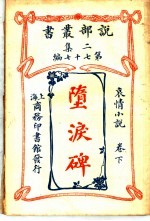 說部叢書
二集
第七十七編
哀情小說
卷下
墮淚碑
上海
商務印書館發行